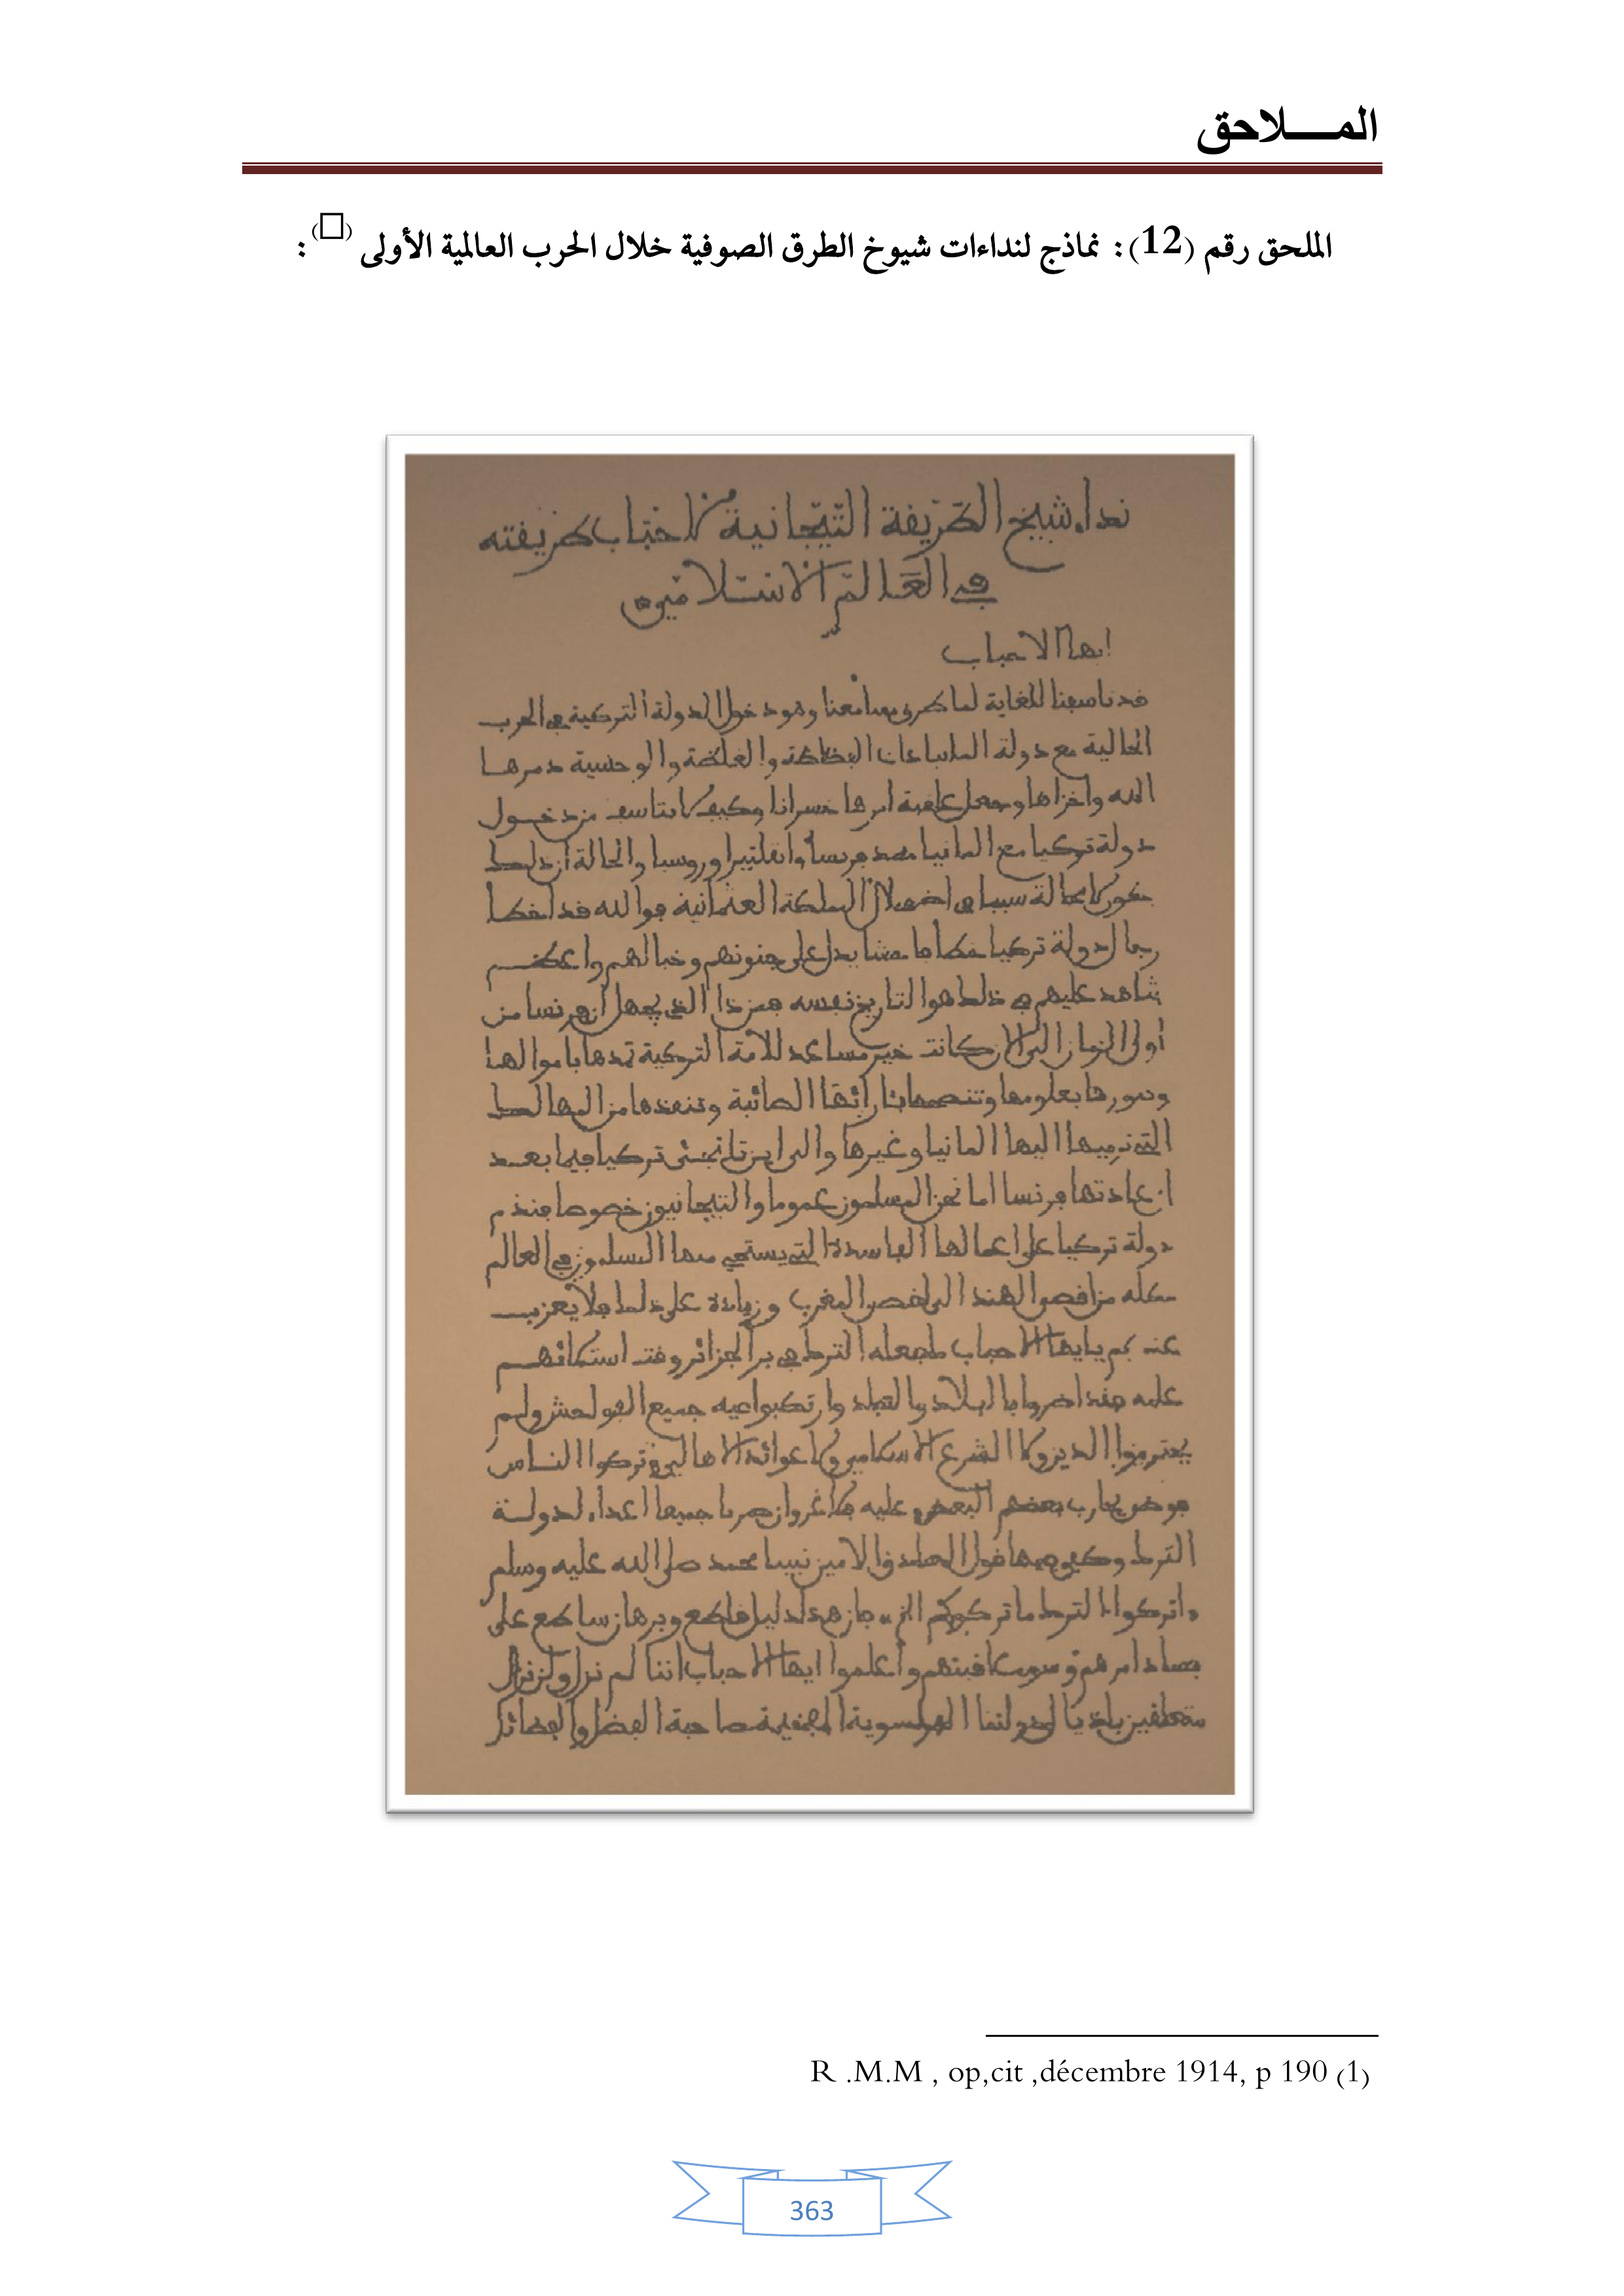 المـــــلاحق
الملحق رقم (12): نماذج لنداءات شيوخ الطرق الصوفية خلال الحرب العالمية الأولى (□) :
نداء شيخ الطريقة التيجانية لاحباب طريقته
في العالم الاسلامي
ايها الاحباب
قد تاسفنا للغاية لما طرق مسامعنا وهو دخول الدولة التركية في الحرب
الحالية مع دولة المانيا ذات الفظاظة والغلظة والوحشية دمرها
الله واخزاها وجعل عاقبة امرها خسرانا وكيف لا نتاسف من دخول
دولة تركيا مع المانيا ضد فرنسا وانقلتيرا وروسيا والحالة ان ذلك
لا محالة سببا في اضمحلال المملكة العثمانية فوالله قد اخطأ
رجال دولة تركيا خطأ فاحشا يدل على جنونهم وخبالهم واعظم
شاهد عليهم في ذلك هو التاريخ نفسه فمن ذا الذي يجهل ان فرنسا من
أول الزمان الى الان كانت خير مساعد للامة التركية تمدها باموالها
وتنورها بعلومها وتنصحها بارائها الصائبة وتنقذها من المهالك
التي ترميها اليها المانيا وغيرها والى اين تلتجئ تركيا فيما بعد
ان عادتها فرنسا اما نحن المسلمون عموما والتيجانيون خصوصا فنذم
دولة تركيا على اعمالها الفاسدة التي يستحي منها المسلمون في العالم
كله من اقصى الهند الى اقصى المغرب وزيادة على ذلك فلا يعزب
عنكم يايها الاحباب ما فعله الترك في بر الجزائر وقت استيلائهم
عليه فقد اضروا بالبلاد والعباد وارتكبوا فيه جميع الفواحش ولم
يحترموا الدين ولا الشرع الاسلامي ولا عوائد الاهالي وتركوا الناس
فوضى يحارب بعضهم البعض وعليه فلا غرو ان صرنا جميعا اعداء لدولة
الترك وكيف وفيها قول الصادق الامين نبينا محمد صلى الله عليه وسلم
واتركوا الترك ما تركوكم الخ فان هذا دليل قاطع وبرهان ساطع على
فساد امرهم وسوء عاقبتهم واعلموا ايها الاحباب اننا لم نزل ولن نزال
متعلقين باذيال دولتنا الفرنسوية الفخيمة صاحبة الفضل والفضائل
R .M.M , op,cit ,décembre 1914, p 190 (1)
363